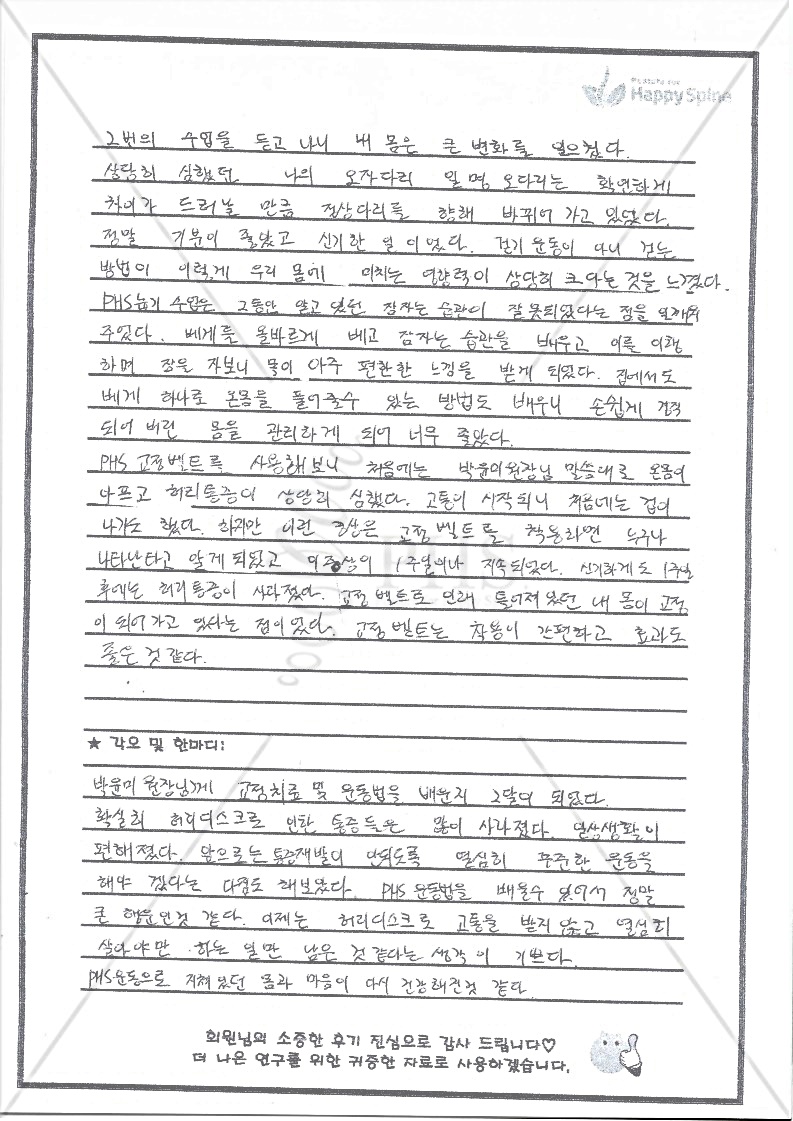 Happy Spine
2번의 수업을 듣고 나니 내 몸은 큰 변화를 일으켰다.
상당히 심했던 나의 오자다리 일명 오다리는 확연하게
차이가 드러날 만큼 정상다리를 향해 바뀌어 가고 있었다.
정말 기분이 좋았고 신기한 일이었다. 걷기 운동이 아니 걷는
방법이 이렇게 우리 몸에 미치는 영향력이 상당히 크다는 것을 느꼈다.
PHS눕기 수업은 그동안 알고 있던 잠자는 습관이 잘못되었다는 점을 일깨워
주었다. 베게를 올바르게 베고 잠자는 습관을 배우고 이를 이행
하며 잠을 자보니 몸이 아주 편한한 느낌을 받게 되었다. 집에서도
베게 하나로 온몸을 풀어줄수 있는 방법도 배우니 손쉽게 경직
되어 버린 몸을 관리하게 되어 너무 좋았다.
PHS 교정벨트를 사용해보니 처음에는 박윤미원장님 말씀대로 온몸이
아프고 허리통증이 상당히 심했다. 고통이 시작되니 처음에는 겁이
나기도 했다. 하지만 이런 현상은 교정벨트를 착용하면 누구나
나타난다고 알게되었고 이증상이 1주일이나 지속되었다. 신기하게도 1주일
후에는 허리통증이 사라졌다. 교정벨트로 인해 틀어져있던 내 몸이 교정
이 되어가고 있다는 점이었다. 교정벨트는 착용이 간편하고 효과도
좋은 것 같다.
★ 각오 및 한마디:
박윤미 원장님께 교정치료 및 운동법을 배운지 2달이 되었다.
확실히 허리디스크로 인한 통증들은 많이 사라졌다. 일상생활이
편해졌다. 앞으로는 통증재발이 안되도록 열심히 꾸준한 운동을
해야 겠다는 다짐도 해보았다. PHS 운동법을 배울수 있어서 정말
큰 행운인것 같다. 이제는 허리디스크로 고통을 받지 않고 열심히
살아야만 하는 일만 남은 것 같다는 생각이 기쁘다.
PHS운동으로 지쳐있던 몸과 마음이 다시 건강해진것 같다.
회원님의 소중한 후기 진심으로 감사 드립니다♡
더 나은 연구를 위한 귀중한 자료로 사용하겠습니다.